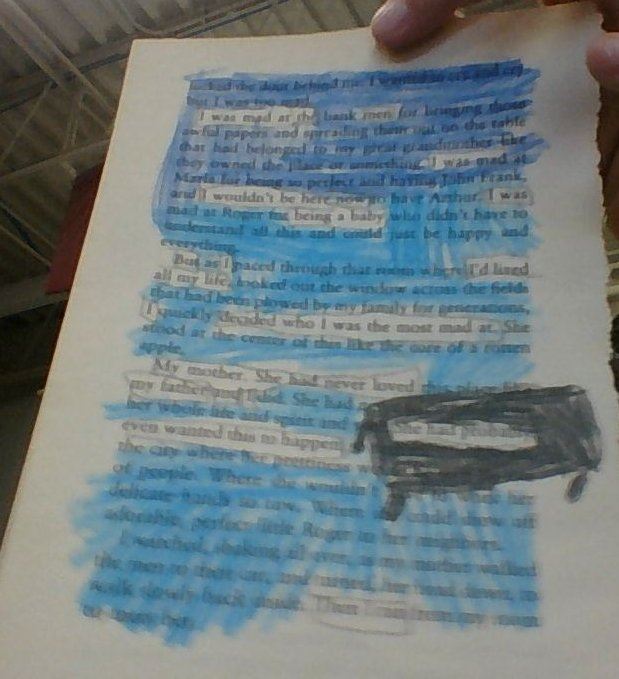 locked the door behind me. I wanted to cry and cry
but I was too mad.
I was mad at the bank men for bringing those
awful papers and spreading them out on the table
that had belonged to my great grandmother like
they owned the place or something. I was mad at
Marla for being so perfect and having John Frank,
and I wouldn't be here now to have Arthur. I was
mad at Roger for being a baby who didn't have to
understand all this and could just be happy and
everything.
But as I paced through that room where I'd lived
all my life, looked out the window across the fields
that had been plowed by my family for generations,
I quickly decided who I was the most mad at. She
stood at the center of this like the core of a rotten
apple.
My mother. She had never loved this place like
my father and I did. She had
her whole life and spirit and She had probably
even wanted this to happen
the city where her prettiness
of people. Where she wouldn't her
delicate hands so raw. Where could show off
adorable, perfect little Roger to her neighbors.
I watched, shaking all over, as my mother walked
the men to their car, and turned, her head down, to
walk slowly back inside. Then I from my room
to